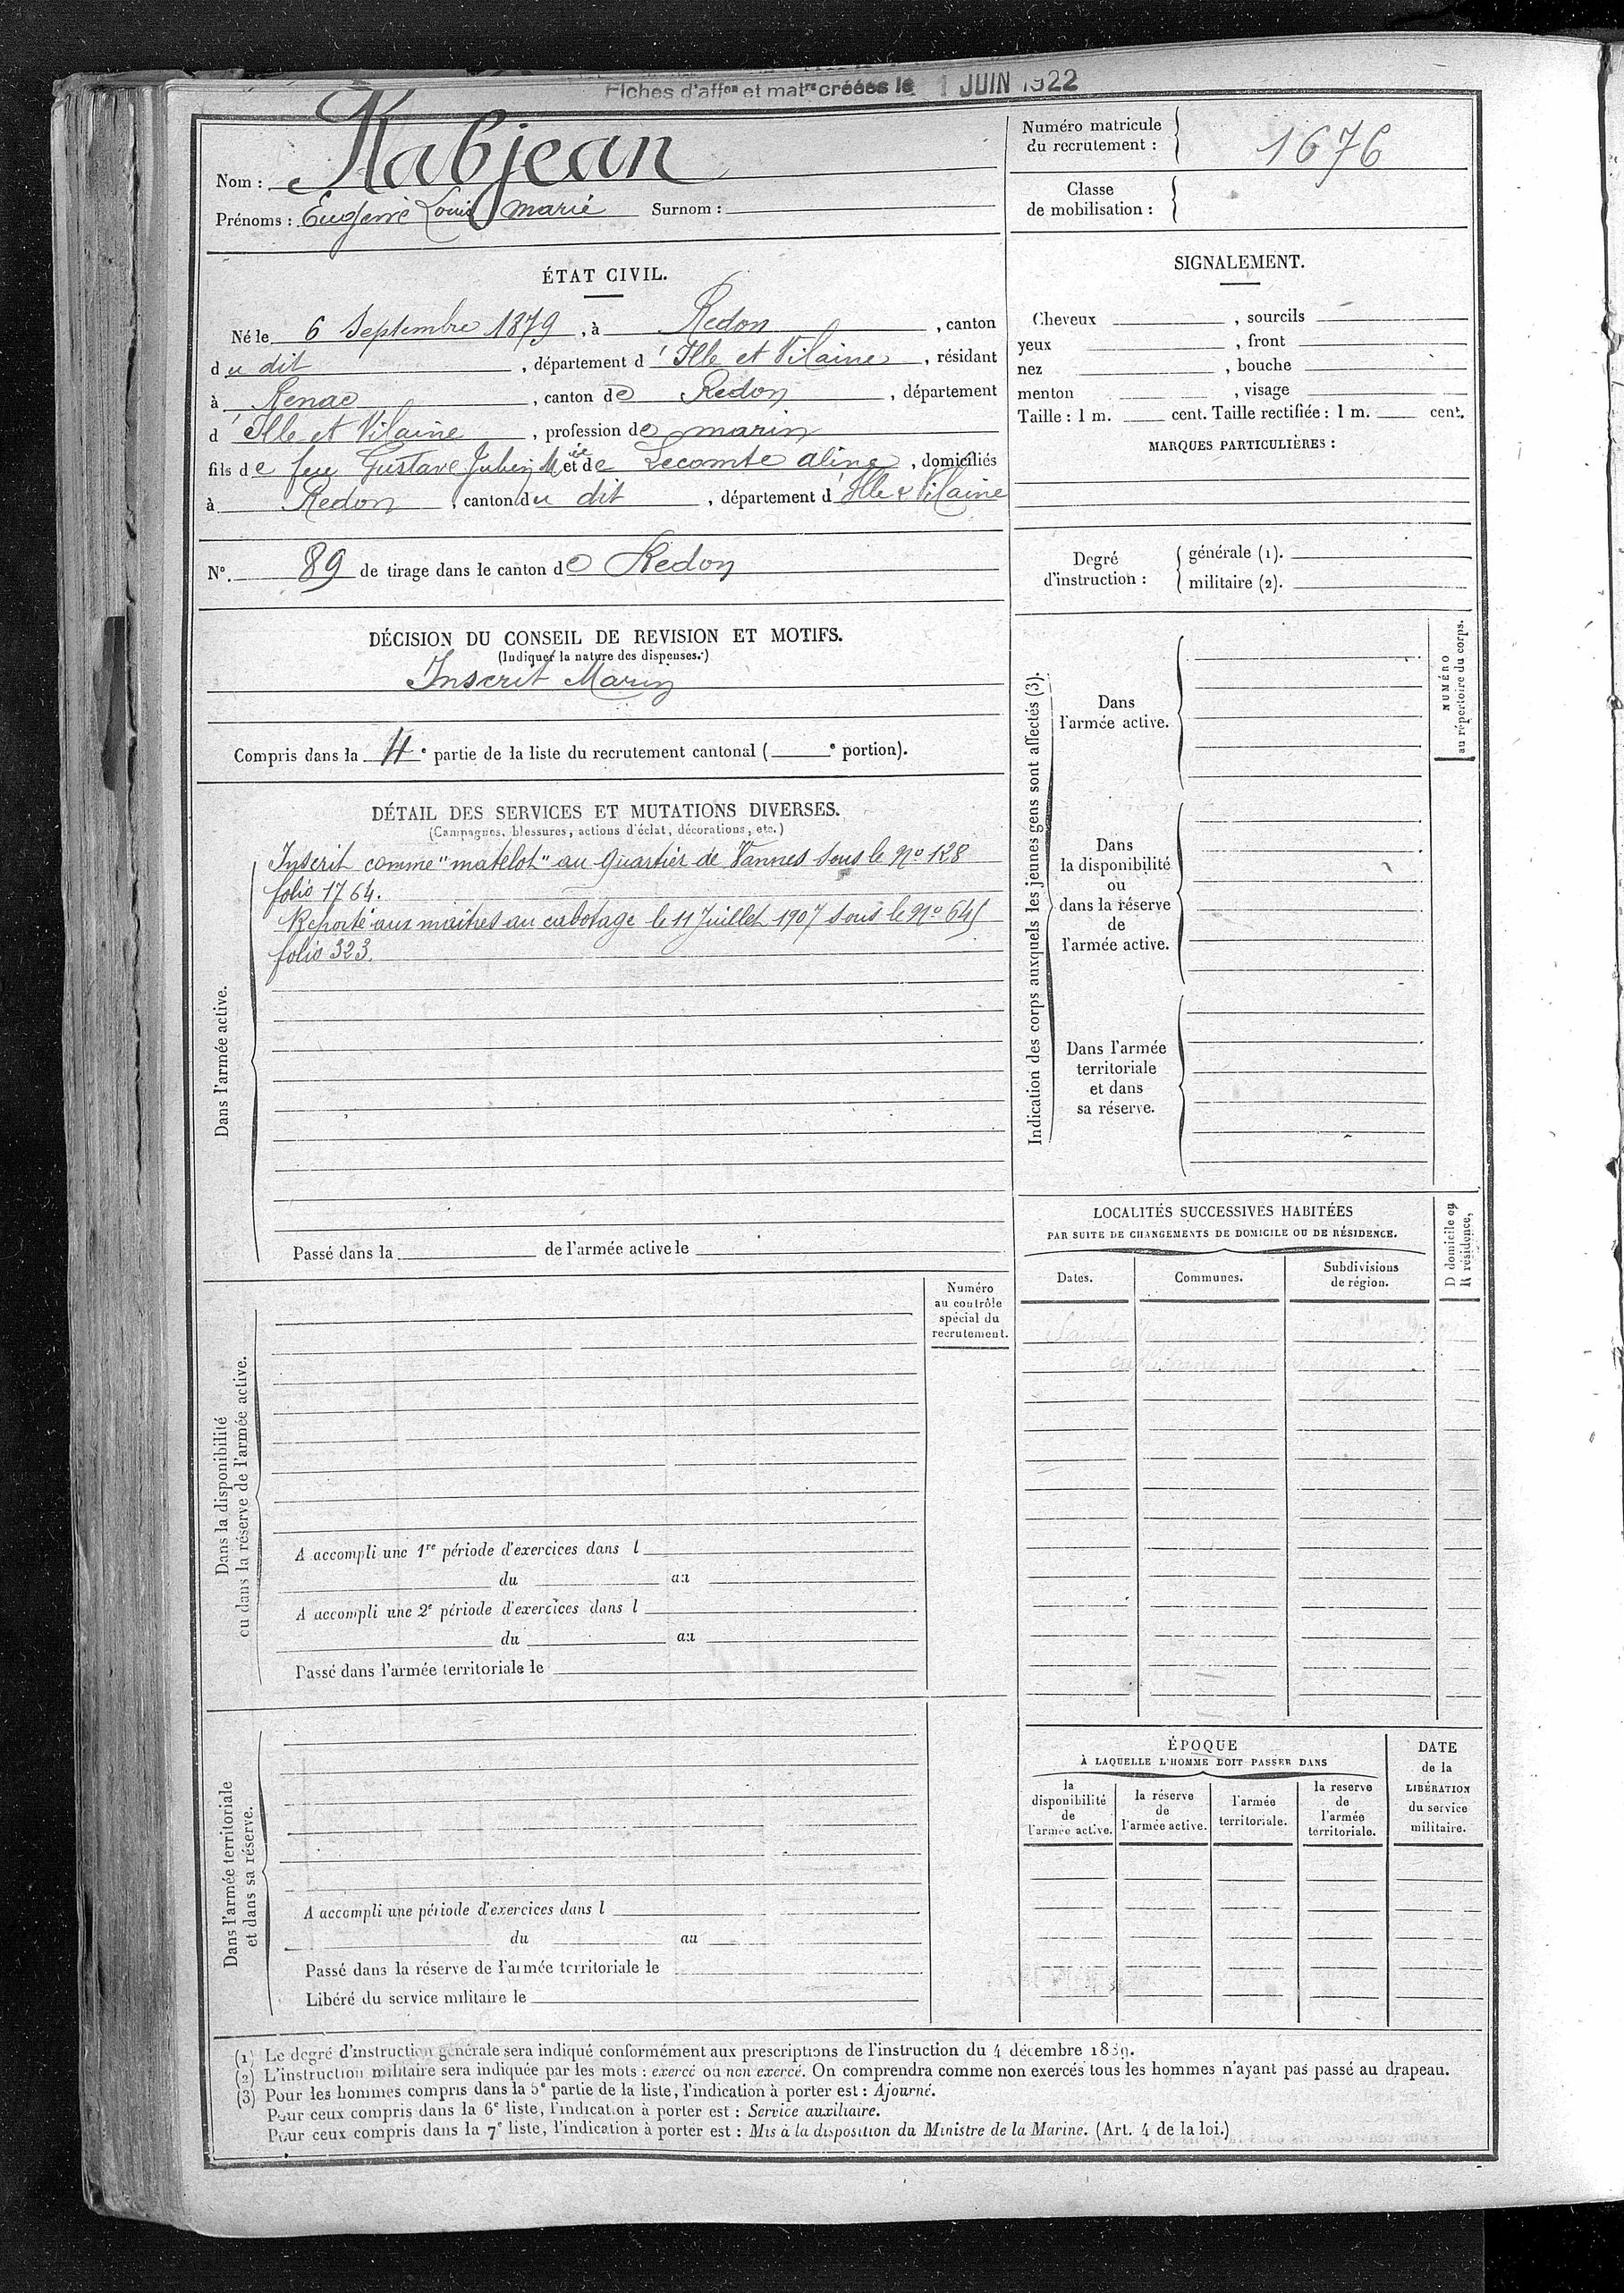 Fiches d'affon et matre créées le 1 JUIN 1922
Nom : Habjean
Prénoms : Eugène Louis Marie Surnom :
Numéro matricule du recrutement : 1676
Classe de mobilisation :
ÉTAT CIVIL.
Né le 6 Septembre 1879, à Redon, canton
du dit, département d'Ille et Vilaine, résidant
à Renac, canton de Redon, département
d'Ille et Vilaine, profession de marin
fils de feu Gustave et de Lecomte aline, domiciliés
à Redon, canton du dit, département d'Ille & Vilaine
N°. 89 de tirage dans le canton de Redon
DÉCISION DU CONSEIL DE REVISION ET MOTIFS.
(Indiquer la nature des dispenses.)
Inscrit Marin
Compris dans la 4e partie de la liste du recrutement cantonal ( e portion).
DÉTAIL DES SERVICES ET MUTATIONS DIVERSES.
(Campagnes, blessures, actions d'éclat, décorations, etc.)
Dans l'armée active.
Inscrit comme "matelot" au quartier de Vannes sous le No 128
folio 1764.
Reporté aux maîtres au cabotage le 11 Juillet 1907 sous le No 645
folio 323.
Passé dans la de l'armée active le
Dans la disponibilité
ou dans la réserve de l'armée active.
Numéro
au contrôle
spécial du
recrutement.
A accompli une 1re période d'exercices dans l
du au
A accompli une 2e période d'exercices dans l
du au
Passé dans l'armée territoriale le
Dans l'armée territoriale
et dans sa réserve.
A accompli une période d'exercices dans l
du au
Passé dans la réserve de l'armée territoriale le
Libéré du service militaire le
SIGNALEMENT.
Cheveux , sourcils
yeux , front
nez , bouche
menton , visage
Taille : 1 m. cent. Taille rectifiée : 1 m. cent.
MARQUES PARTICULIÈRES :
Degré d'instruction :
générale (1).
militaire (2).
Indication des corps auxquels les jeunes gens sont affectés (3).
NUMÉRO
au répertoire du corps.
Dans
l'armée active.
Dans
la disponibilité
ou
dans la réserve
de
l'armée active.
Dans l'armée
territoriale
et dans
sa réserve.
LOCALITÉS SUCCESSIVES HABITÉES
PAR SUITE DE CHANGEMENTS DE DOMICILE OU DE RÉSIDENCE.
D domicile ou
R résidence,
Dates.
Communes.
Subdivisions
de région.
ÉPOQUE
À LAQUELLE L'HOMME DOIT PASSER DANS
la
disponibilité
de
l'armée active.
la réserve
de
l'armée active.
l'armée
territoriale.
la reserve
de
l'armée
territoriale.
DATE
de la
LIBÉRATION
du service
militaire.
(1) Le degré d'instruction générale sera indiqué conformément aux prescriptions de l'instruction du 4 décembre 1889.
(2) L'instruction militaire sera indiquée par les mots : exercé ou non exercé. On comprendra comme non exercés tous les hommes n'ayant pas passé au drapeau.
(3) Pour les hommes compris dans la 5e partie de la liste, l'indication à porter est : Ajourné.
Pour ceux compris dans la 6e liste, l'indication à porter est : Service auxiliaire.
Pour ceux compris dans la 7e liste, l'indication à porter est : Mis à la disposition du Ministre de la Marine. (Art. 4 de la loi.)